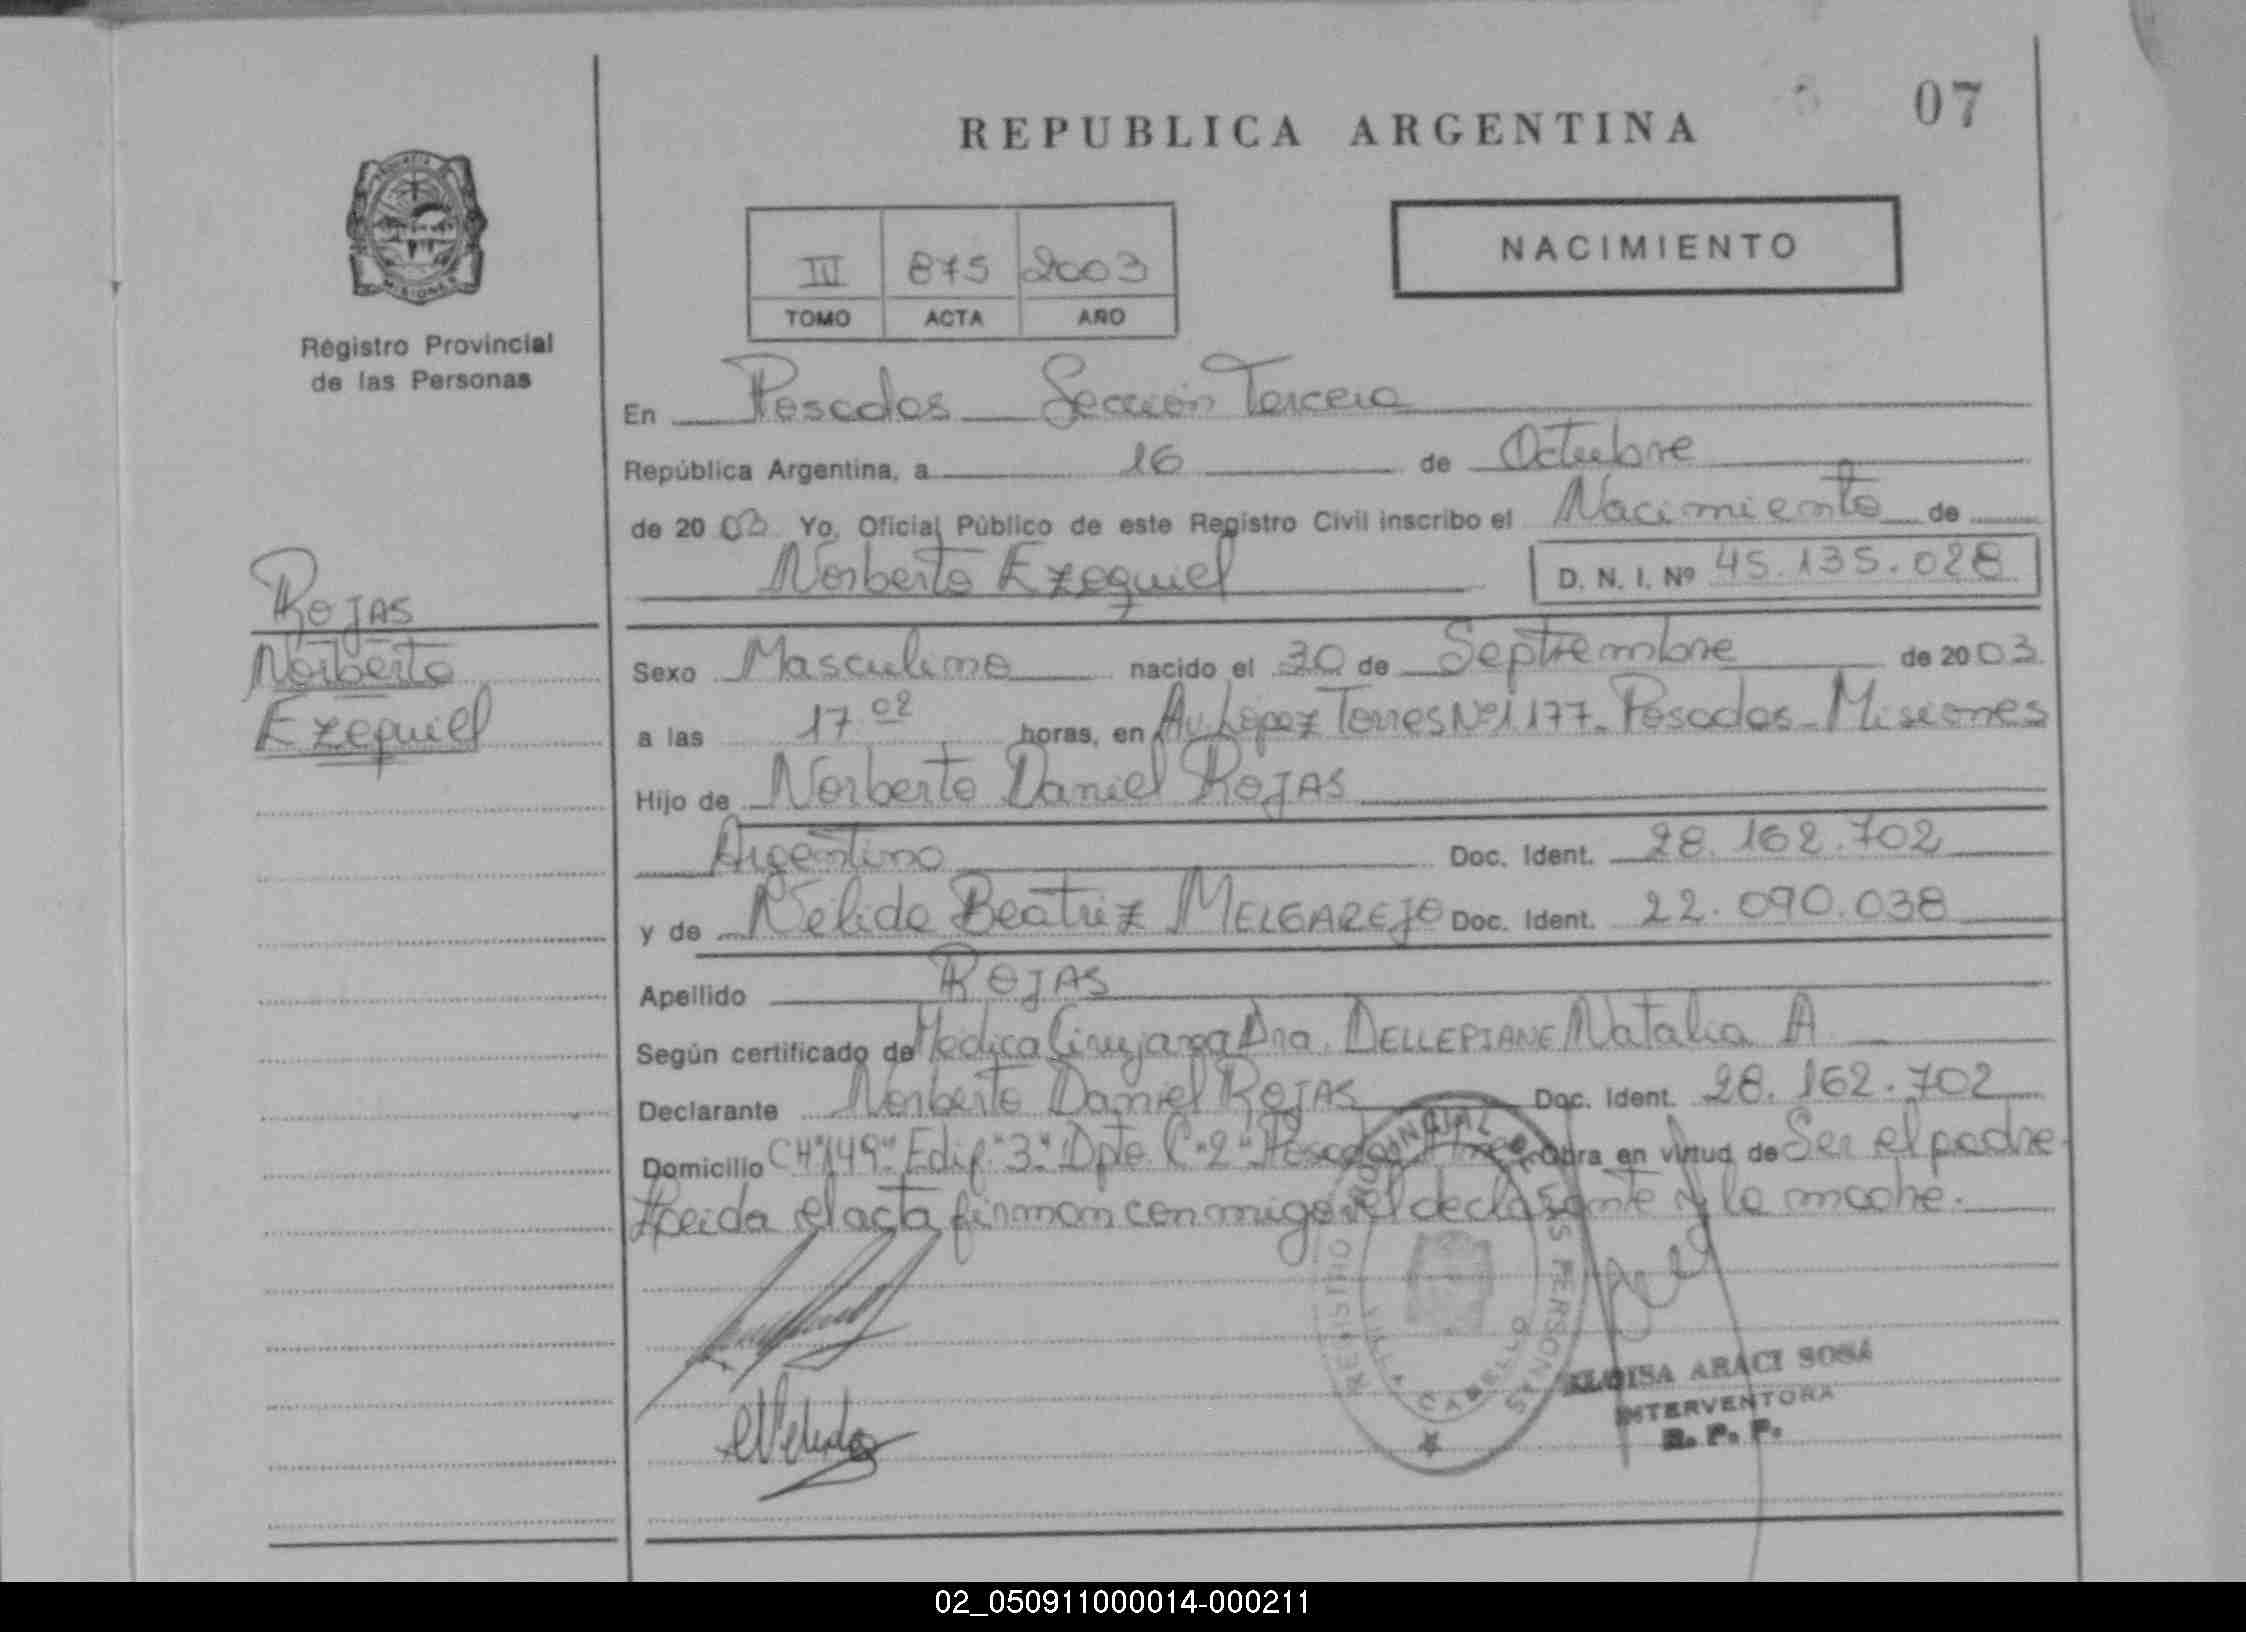 REPUBLICA ARGENTINA
07
PROVINCIA
MISIONES
Registro Provincial
de las Personas
III 875 2003
TOMO ACTA AÑO
NACIMIENTO
En Posadas Sección Tercera
República Argentina, a 16 de Octubre
de 2003 Yo, Oficial Público de este Registro Civil inscribo el Nacimiento de
Norberto Ezequiel D. N. I. Nº 45.135.028
ROJAS
Norberto
Ezequiel
Sexo Masculino nacido el 30 de Septiembre de 2003
a las 17 02 horas, en Av. López Torres Nº 1177 - Posadas - Misiones
Hijo de Norberto Daniel ROJAS
Argentino Doc. Ident. 28.162.702
y de Nélida Beatriz MELGAREJO Doc. Ident. 22.090.038
Apellido ROJAS
Según certificado de Médica Cirujana Dra. DELLEPIANE Natalia A
Declarante Norberto Daniel ROJAS Doc. Ident. 28.162.702
Domicilio CH"149" Edif. "3" Dpto C"2" Posadas Obra en virtud de Ser el padre
Leida el acta firman conmigo el declarante y la madre.
REGISTRO PROVINCIAL DE LAS PERSONAS
VILLA CABELLO
Nelida
ELOISA ARACI SOSA
INTERVENTORA
R. P. P.
02_050911000014-000211